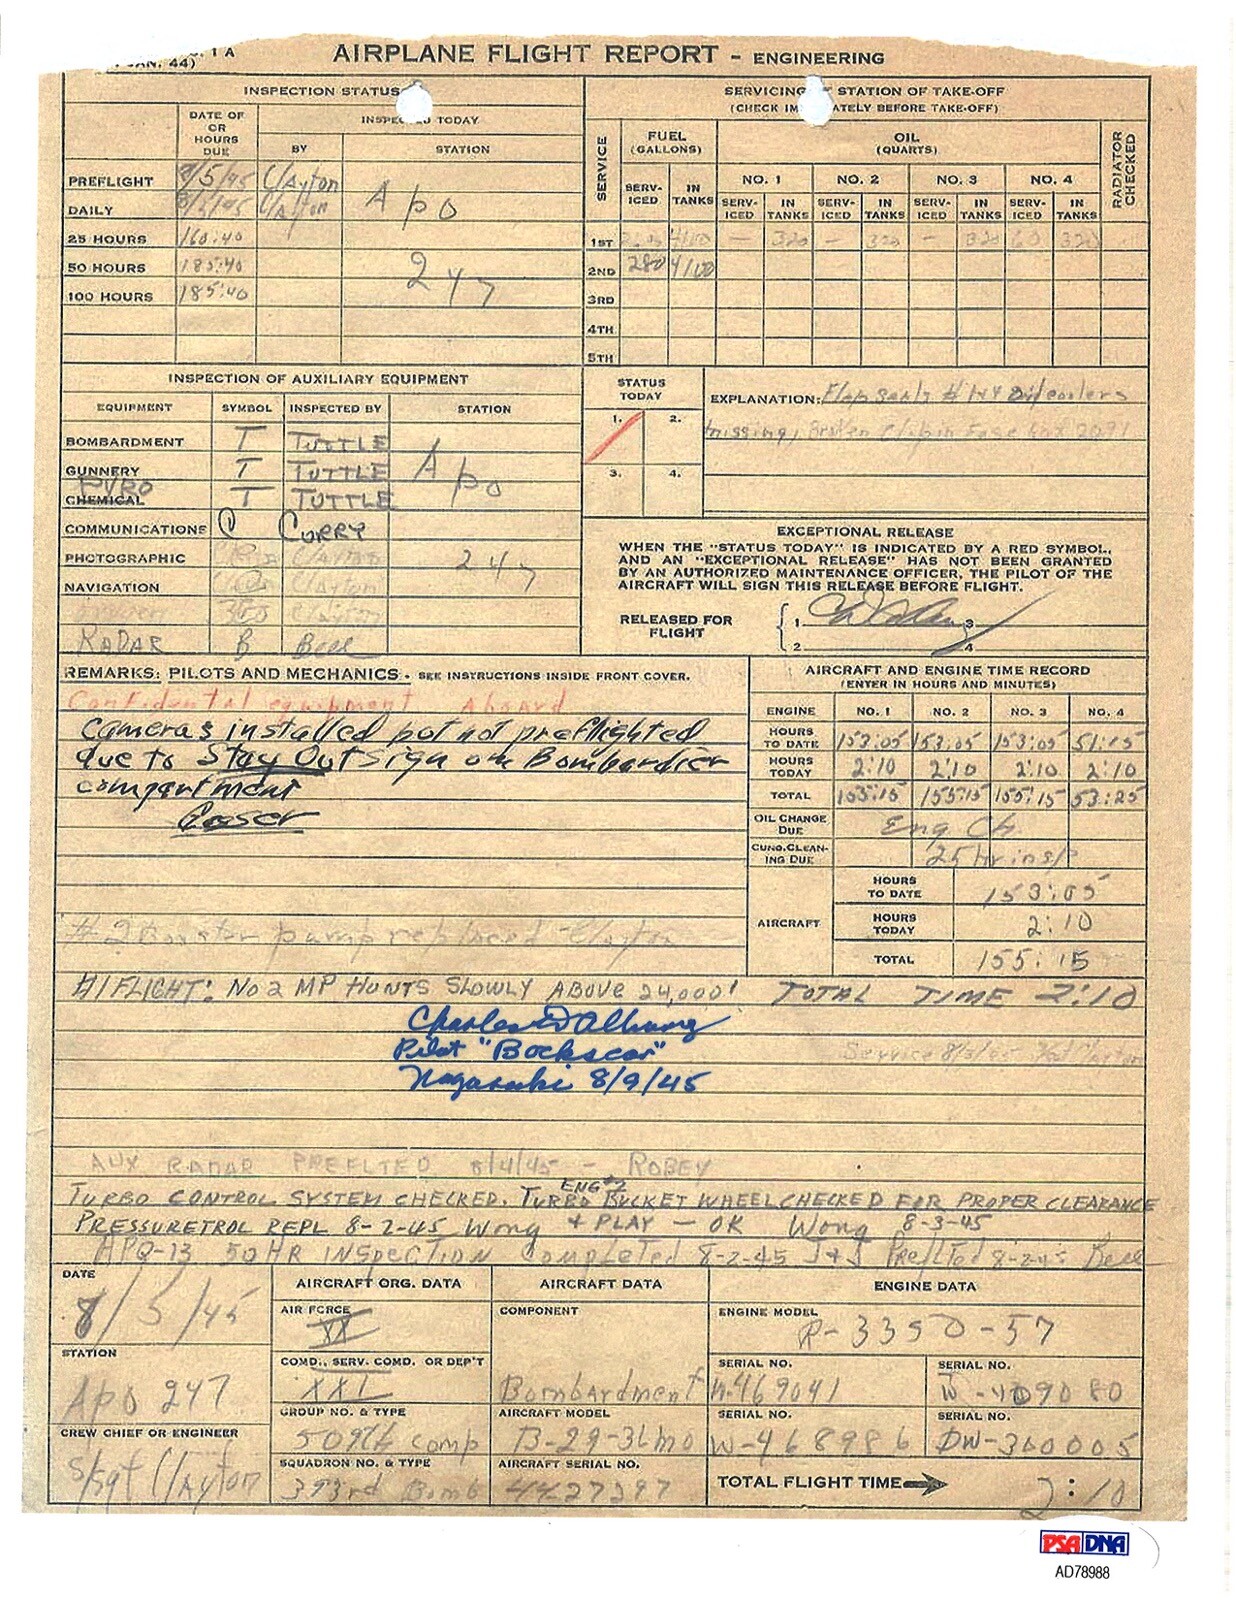 . 1 A
JAN. 44)
AIRPLANE FLIGHT REPORT - ENGINEERING
INSPECTION STATUS
DATE OF OR HOURS DUE
INSPECTED TODAY
BY
STATION
PREFLIGHT 8/5/45 Clayton
DAILY 8/5/45 Clayton
Apo
25 HOURS 160:40
50 HOURS 185:40
247
100 HOURS 185:40
SERVICING STATION OF TAKE-OFF
(CHECK IMMEDIATELY BEFORE TAKE-OFF)
SERVICE
FUEL (GALLONS)
OIL (QUARTS)
RADIATOR CHECKED
NO. 1 NO. 2 NO. 3 NO. 4
SERV-ICED IN TANKS SERV-ICED IN TANKS SERV-ICED IN TANKS SERV-ICED IN TANKS SERV-ICED IN TANKS
1ST — 320 — 320 — 320 320
2ND 280 4100
3RD
4TH
5TH
INSPECTION OF AUXILIARY EQUIPMENT
EQUIPMENT SYMBOL INSPECTED BY STATION
BOMBARDMENT T TUTTLE
GUNNERY T TUTTLE
Apo
PYRO
CHEMICAL T TUTTLE
COMMUNICATIONS C CURRY
PHOTOGRAPHIC Clayton
247
NAVIGATION Clayton
Clayton
RADAR B Bell
STATUS TODAY
1. 2.
3. 4.
EXPLANATION: Flap Seals #1&4 Oil coolers
missing, Broken
EXCEPTIONAL RELEASE
WHEN THE "STATUS TODAY" IS INDICATED BY A RED SYMBOL,
AND AN "EXCEPTIONAL RELEASE" HAS NOT BEEN GRANTED
BY AN AUTHORIZED MAINTENANCE OFFICER, THE PILOT OF THE
AIRCRAFT WILL SIGN THIS RELEASE BEFORE FLIGHT.
RELEASED FOR FLIGHT
1 3
2 4
REMARKS: PILOTS AND MECHANICS - SEE INSTRUCTIONS INSIDE FRONT COVER.
Confidental equipment Aboard
Cameras installed bot not preflighted
due to Stay Out Sign on Bombardier
compartment
#2 Booster pump replaced - Clayton
AIRCRAFT AND ENGINE TIME RECORD
(ENTER IN HOURS AND MINUTES)
ENGINE NO. 1 NO. 2 NO. 3 NO. 4
HOURS TO DATE 153:05 153:05 153:05 51:15
HOURS TODAY 2:10 2:10 2:10 2:10
TOTAL 155:15 155:15 155:15 53:25
OIL CHANGE DUE Eng Ch
CUNO. CLEAN-ING DUE 25 hr insp
AIRCRAFT
HOURS TO DATE 153:05
HOURS TODAY 2:10
TOTAL 155:15
#1 FLIGHT: NO 2 MP HUNTS SLOWLY ABOVE 24,000' TOTAL TIME 2:10
Charles D Albury
Pilot "Bockscar"
Nagasaki 8/9/45
Service 8/5/45 Clayton
AUX RADAR PREFLTED 8/4/45 - ROBEY
TURBO CONTROL SYSTEM CHECKED. ENG #2 TURBO BUCKET WHEEL CHECKED FOR PROPER CLEARANCE
PRESSURETROL REPL 8-2-45 Wong + PLAY — OK Wong 8-3-45
APQ-13 50 HR INSPECTION Completed 8-2-45 Preflted 8-2-45 Bell
DATE
8/5/45
STATION
Apo 247
CREW CHIEF OR ENGINEER
S/Sgt Clayton
AIRCRAFT ORG. DATA
AIR FORCE
XX
COMD., SERV. COMD. OR DEP'T
XXI
GROUP NO. & TYPE
509th comp
SQUADRON NO. & TYPE
393rd Bomb
AIRCRAFT DATA
COMPONENT
Bombardment
AIRCRAFT MODEL
B-29-36 mo
AIRCRAFT SERIAL NO.
44-27297
ENGINE DATA
ENGINE MODEL
R-3350-57
SERIAL NO. SERIAL NO.
W-469041 W-409080
SERIAL NO. SERIAL NO.
W-468986 DW-300005
TOTAL FLIGHT TIME 2:10
PSA DNA
AD78988